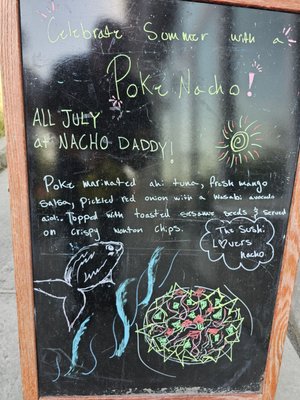 Celebrate Summer with a
Poke Nacho!
ALL JULY
at NACHO DADDY!
Poke marinated ahi tuna, fresh mango
salsa, Pickled red onion with a Wasabi avocado
aioli. Topped with toasted sesame seeds & served
on crispy wonton chips.
The Sushi
Lovers
nacho